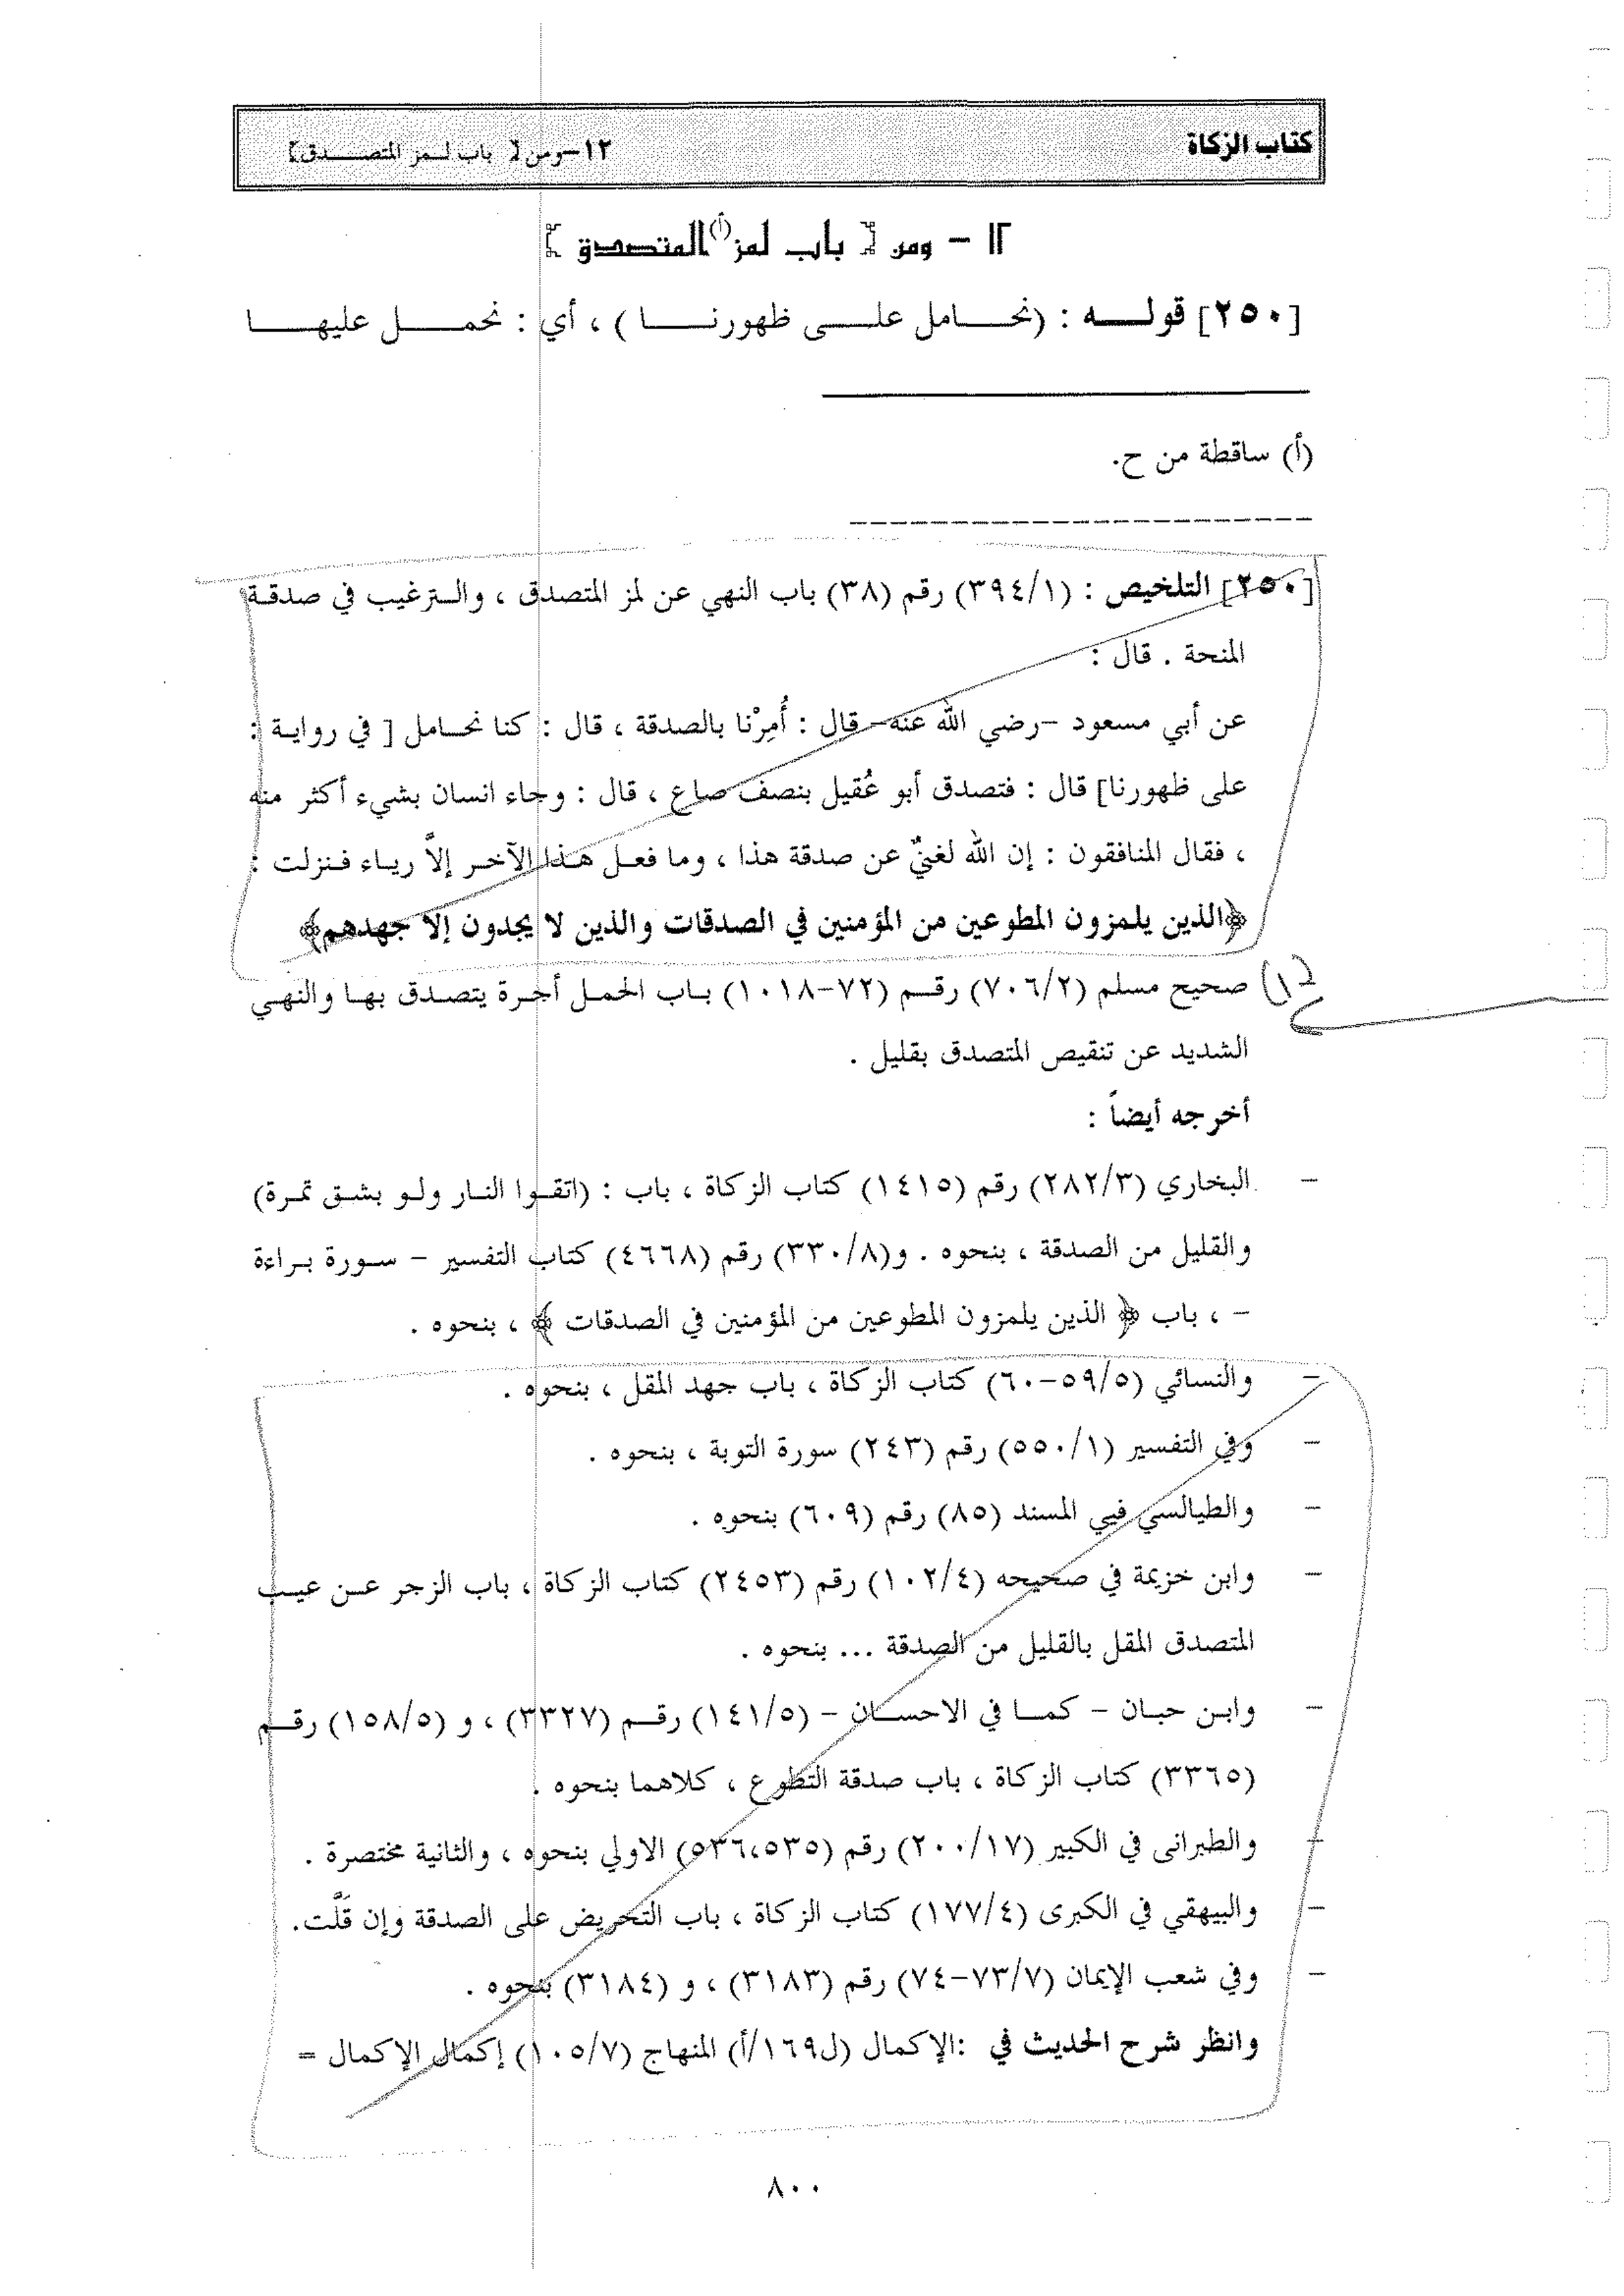 كتاب الزكاة
١٢-ومن [ باب لـمز المتصـــدق]
١٢ - ومن [ باب لمز(أ) المتصدق ]
[٢٥٠] قولـــه : (نحـــامل علـــى ظهورنـــا ) ، أي : نحمـــل عليهـــا
(أ) ساقطة من ح.
[٢٥٠] التلخيص : (٣٩٤/١) رقم (٣٨) باب النهي عن لمز المتصدق ، والـترغيب في صدقـة
المنحة . قال :
عن أبي مسعود -رضي الله عنه- قال : أُمِرْنا بالصدقة ، قال : كنا نحـامل [ في روايـة :
على ظهورنا] قال : فتصدق أبو عُقيل بنصف صاع ، قال : وجاء انسان بشيء أكثر منه
، فقال المنافقون : إن الله لغنيٌّ عن صدقة هذا ، وما فعـل هـذا الآخـر إلاَّ ريـاء فـنزلت :
﴿الذين يلمزون المطوعين من المؤمنين في الصدقات والذين لا يجدون إلا جهدهم﴾
(١) صحيح مسلم (٧٠٦/٢) رقـم (٧٢-١٠١٨) بـاب الحمـل أجـرة يتصـدق بهـا والنهـي
الشديد عن تنقيص المتصدق بقليل .
أخرجه أيضاً :
- البخاري (٢٨٢/٣) رقم (١٤١٥) كتاب الزكاة ، باب : (اتقـوا النـار ولـو بشـق تمـرة)
والقليل من الصدقة ، بنحوه . و(٣٣٠/٨) رقم (٤٦٦٨) كتاب التفسير - سـورة بـراءة
- ، باب ﴿ الذين يلمزون المطوعين من المؤمنين في الصدقات ﴾ ، بنحوه .
- والنسائي (٥٩/٥-٦٠) كتاب الزكاة ، باب جهد المقل ، بنحوه .
- وفي التفسير (٥٥٠/١) رقم (٢٤٣) سورة التوبة ، بنحوه .
- والطيالسي فيي المسند (٨٥) رقم (٦٠٩) بنحوه .
- وابن خزيمة في صحيحه (١٠٢/٤) رقم (٢٤٥٣) كتاب الزكاة ، باب الزجر عـن عيـب
المتصدق المقل بالقليل من الصدقة ... بنحوه .
- وابـن حبـان - كمـا في الاحسـان - (١٤١/٥) رقـم (٣٣٢٧) ، و (١٥٨/٥) رقـم
(٣٣٦٥) كتاب الزكاة ، باب صدقة التطوع ، كلاهما بنحوه .
- والطبرانى في الكبير (٢٠٠/١٧) رقم (٥٣٦،٥٣٥) الاولي بنحوه ، والثانية مختصرة .
- والبيهقي في الكبرى (١٧٧/٤) كتاب الزكاة ، باب التحريض على الصدقة وإن قَلَّت.
- وفي شعب الإيمان (٧٣/٧-٧٤) رقم (٣١٨٣) ، و (٣١٨٤) بنحوه .
وانظر شرح الحديث في :الإكمال (ل١٦٩/أ) المنهاج (١٠٥/٧) إكمال الإكمال =
٨٠٠